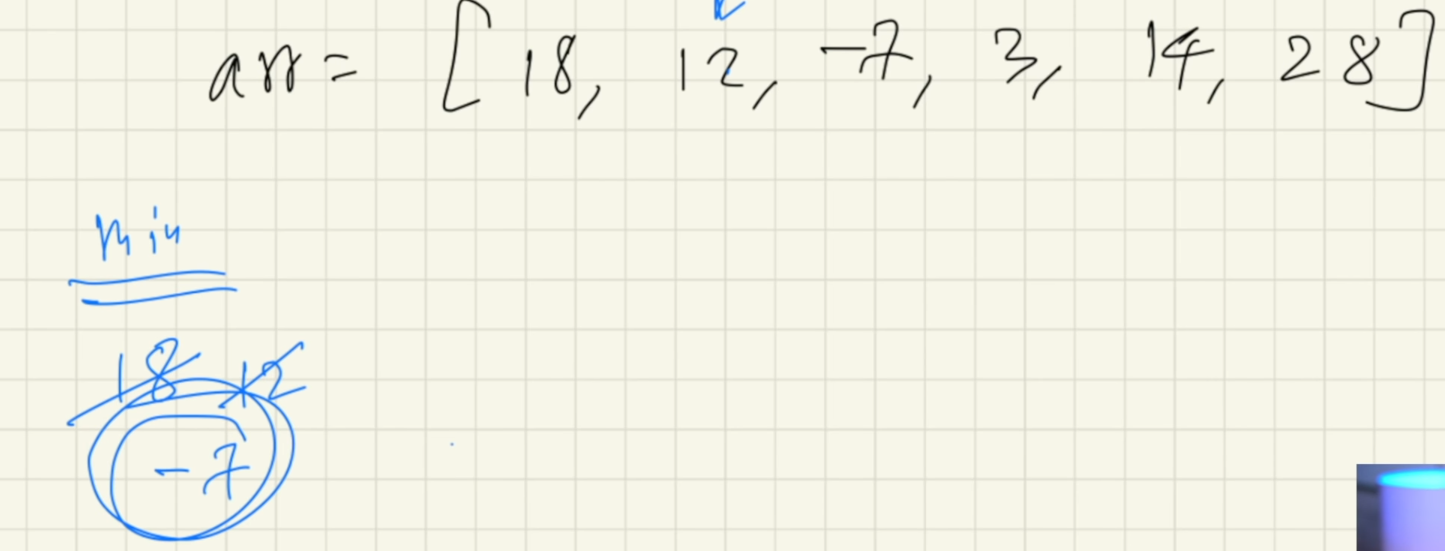 arr = [18, 12, -7, 3, 14, 28]
min
18 12
-7